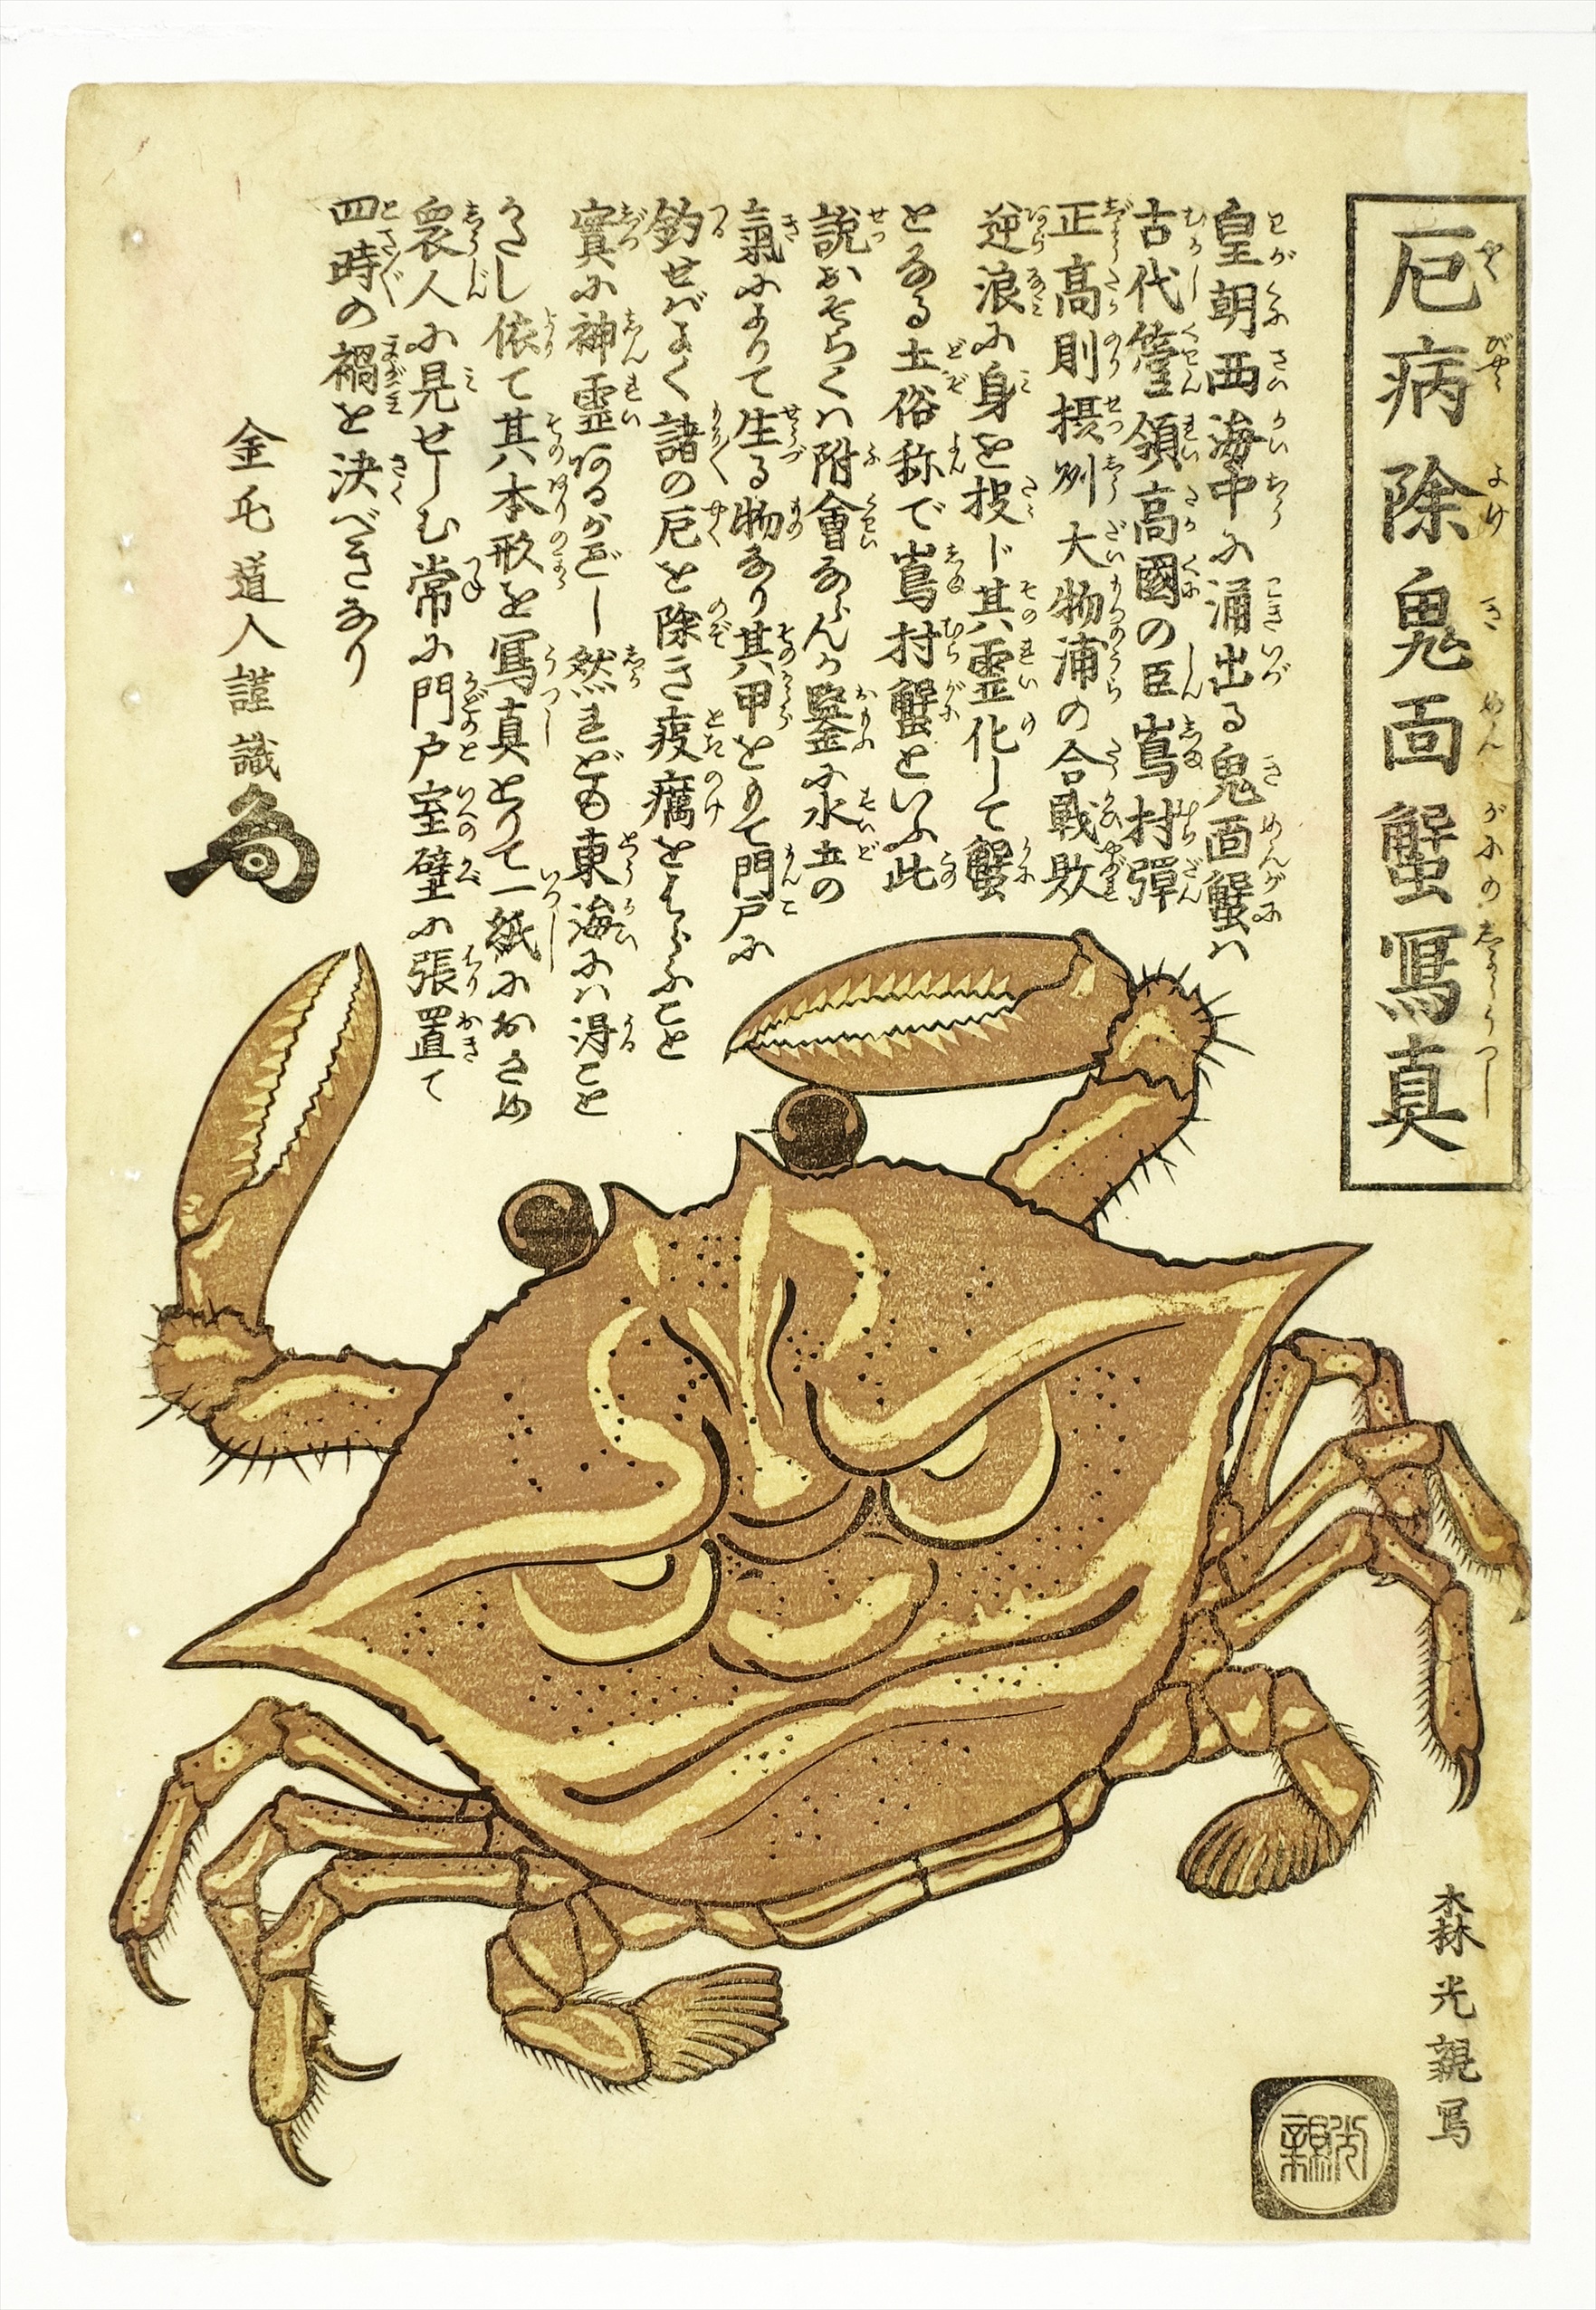 厄病除鬼面蟹寫真
皇朝西海中に涌出る鬼面蟹ハ
古代管領高國の臣嶌村彈
正高則摂州大物浦の合戰敗
逆浪に身を投ド其霊化して蟹
となる土俗称で嶌村蟹といふ此
説おそらくハ附會ならんか鑒に水土の
氣によりて生る物なり其甲をもて門戸に
釣せバよく諸の厄を除き疫癘をはらふこと
實に神霊あるがごとし然れども東海にハ得こと
かたし依て其本形を寫真とりて一紙におさめ
衆人に見せしむ常に門戸室壁に張置て
四時の禍を決べきなり
金毛道人謹識
森光親写
光親